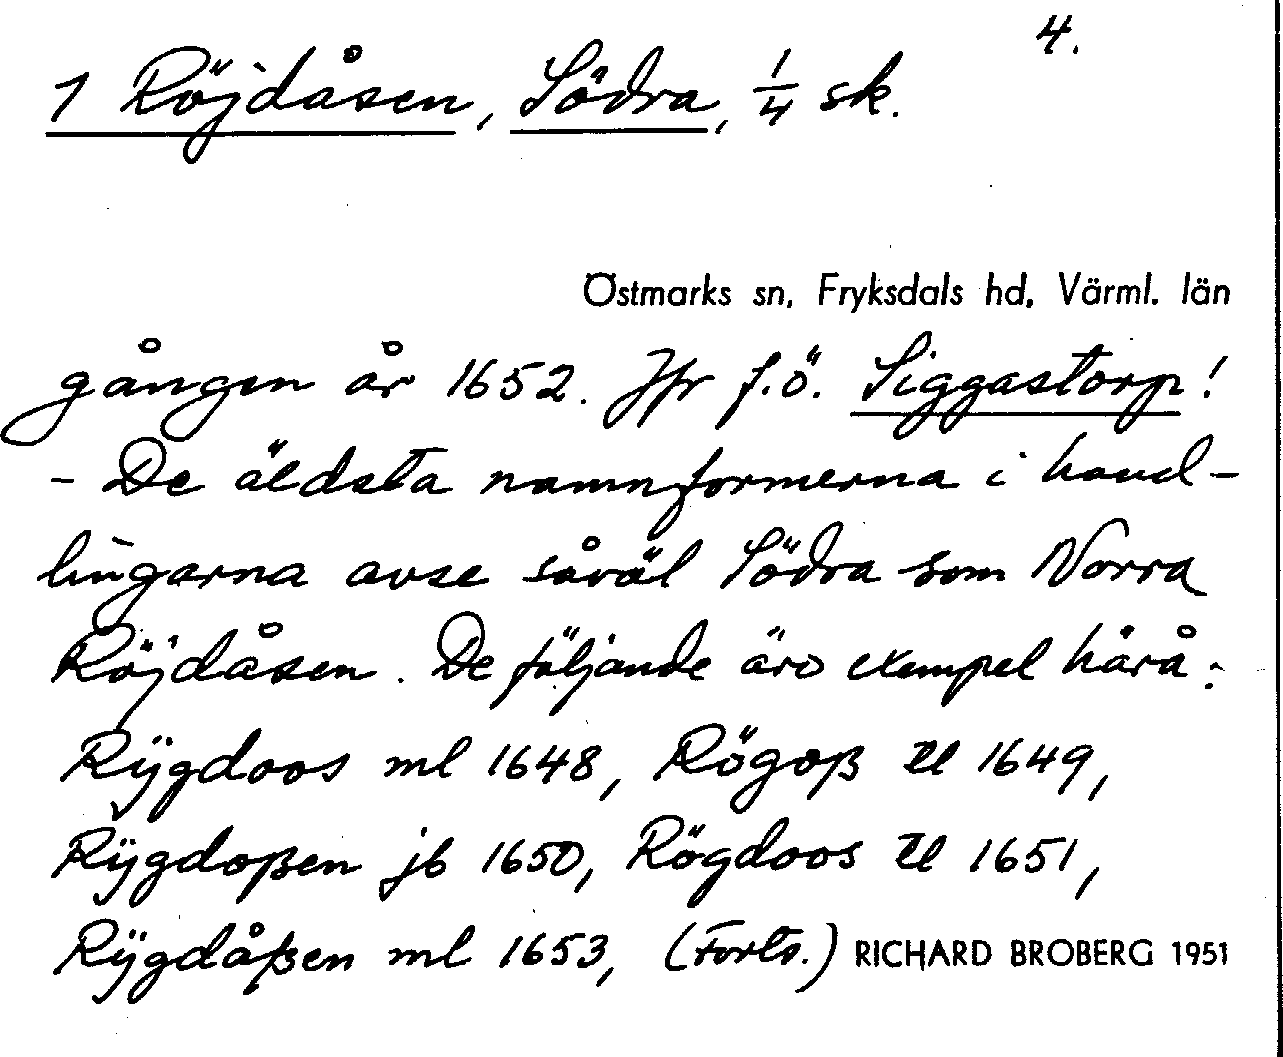 4.
1 Röjdåsen, Södra, 1/4 sk.
Östmarks sn, Fryksdals hd, Värml. län
gången år 1652. Jfr f.ö. Siggastorp!
- De äldsta namnformerna i hand-
lingarna avse såväl Södra som Norra
Röjdåsen. De följande äro exempel härå:
Rÿgdoos ml 1648, Rögoß ll 1649,
Rÿgdoßen jb 1650, Rögdoos ll 1651,
Rÿgdåßen ml 1653, (Forts.) RICHARD BROBERG 1951